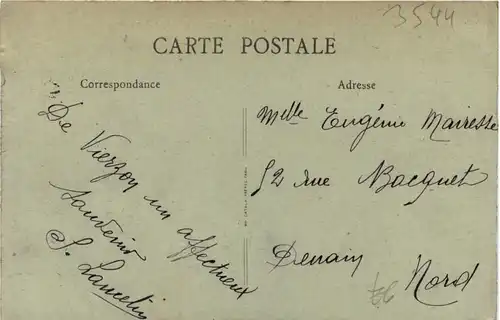 3544
CARTE POSTALE
Correspondance
Adresse
De Vierzon un affectueux
souvenir
S. Lancelin
Melle Eugénie Mairesse
52 rue Bocquet
Denain
Nord